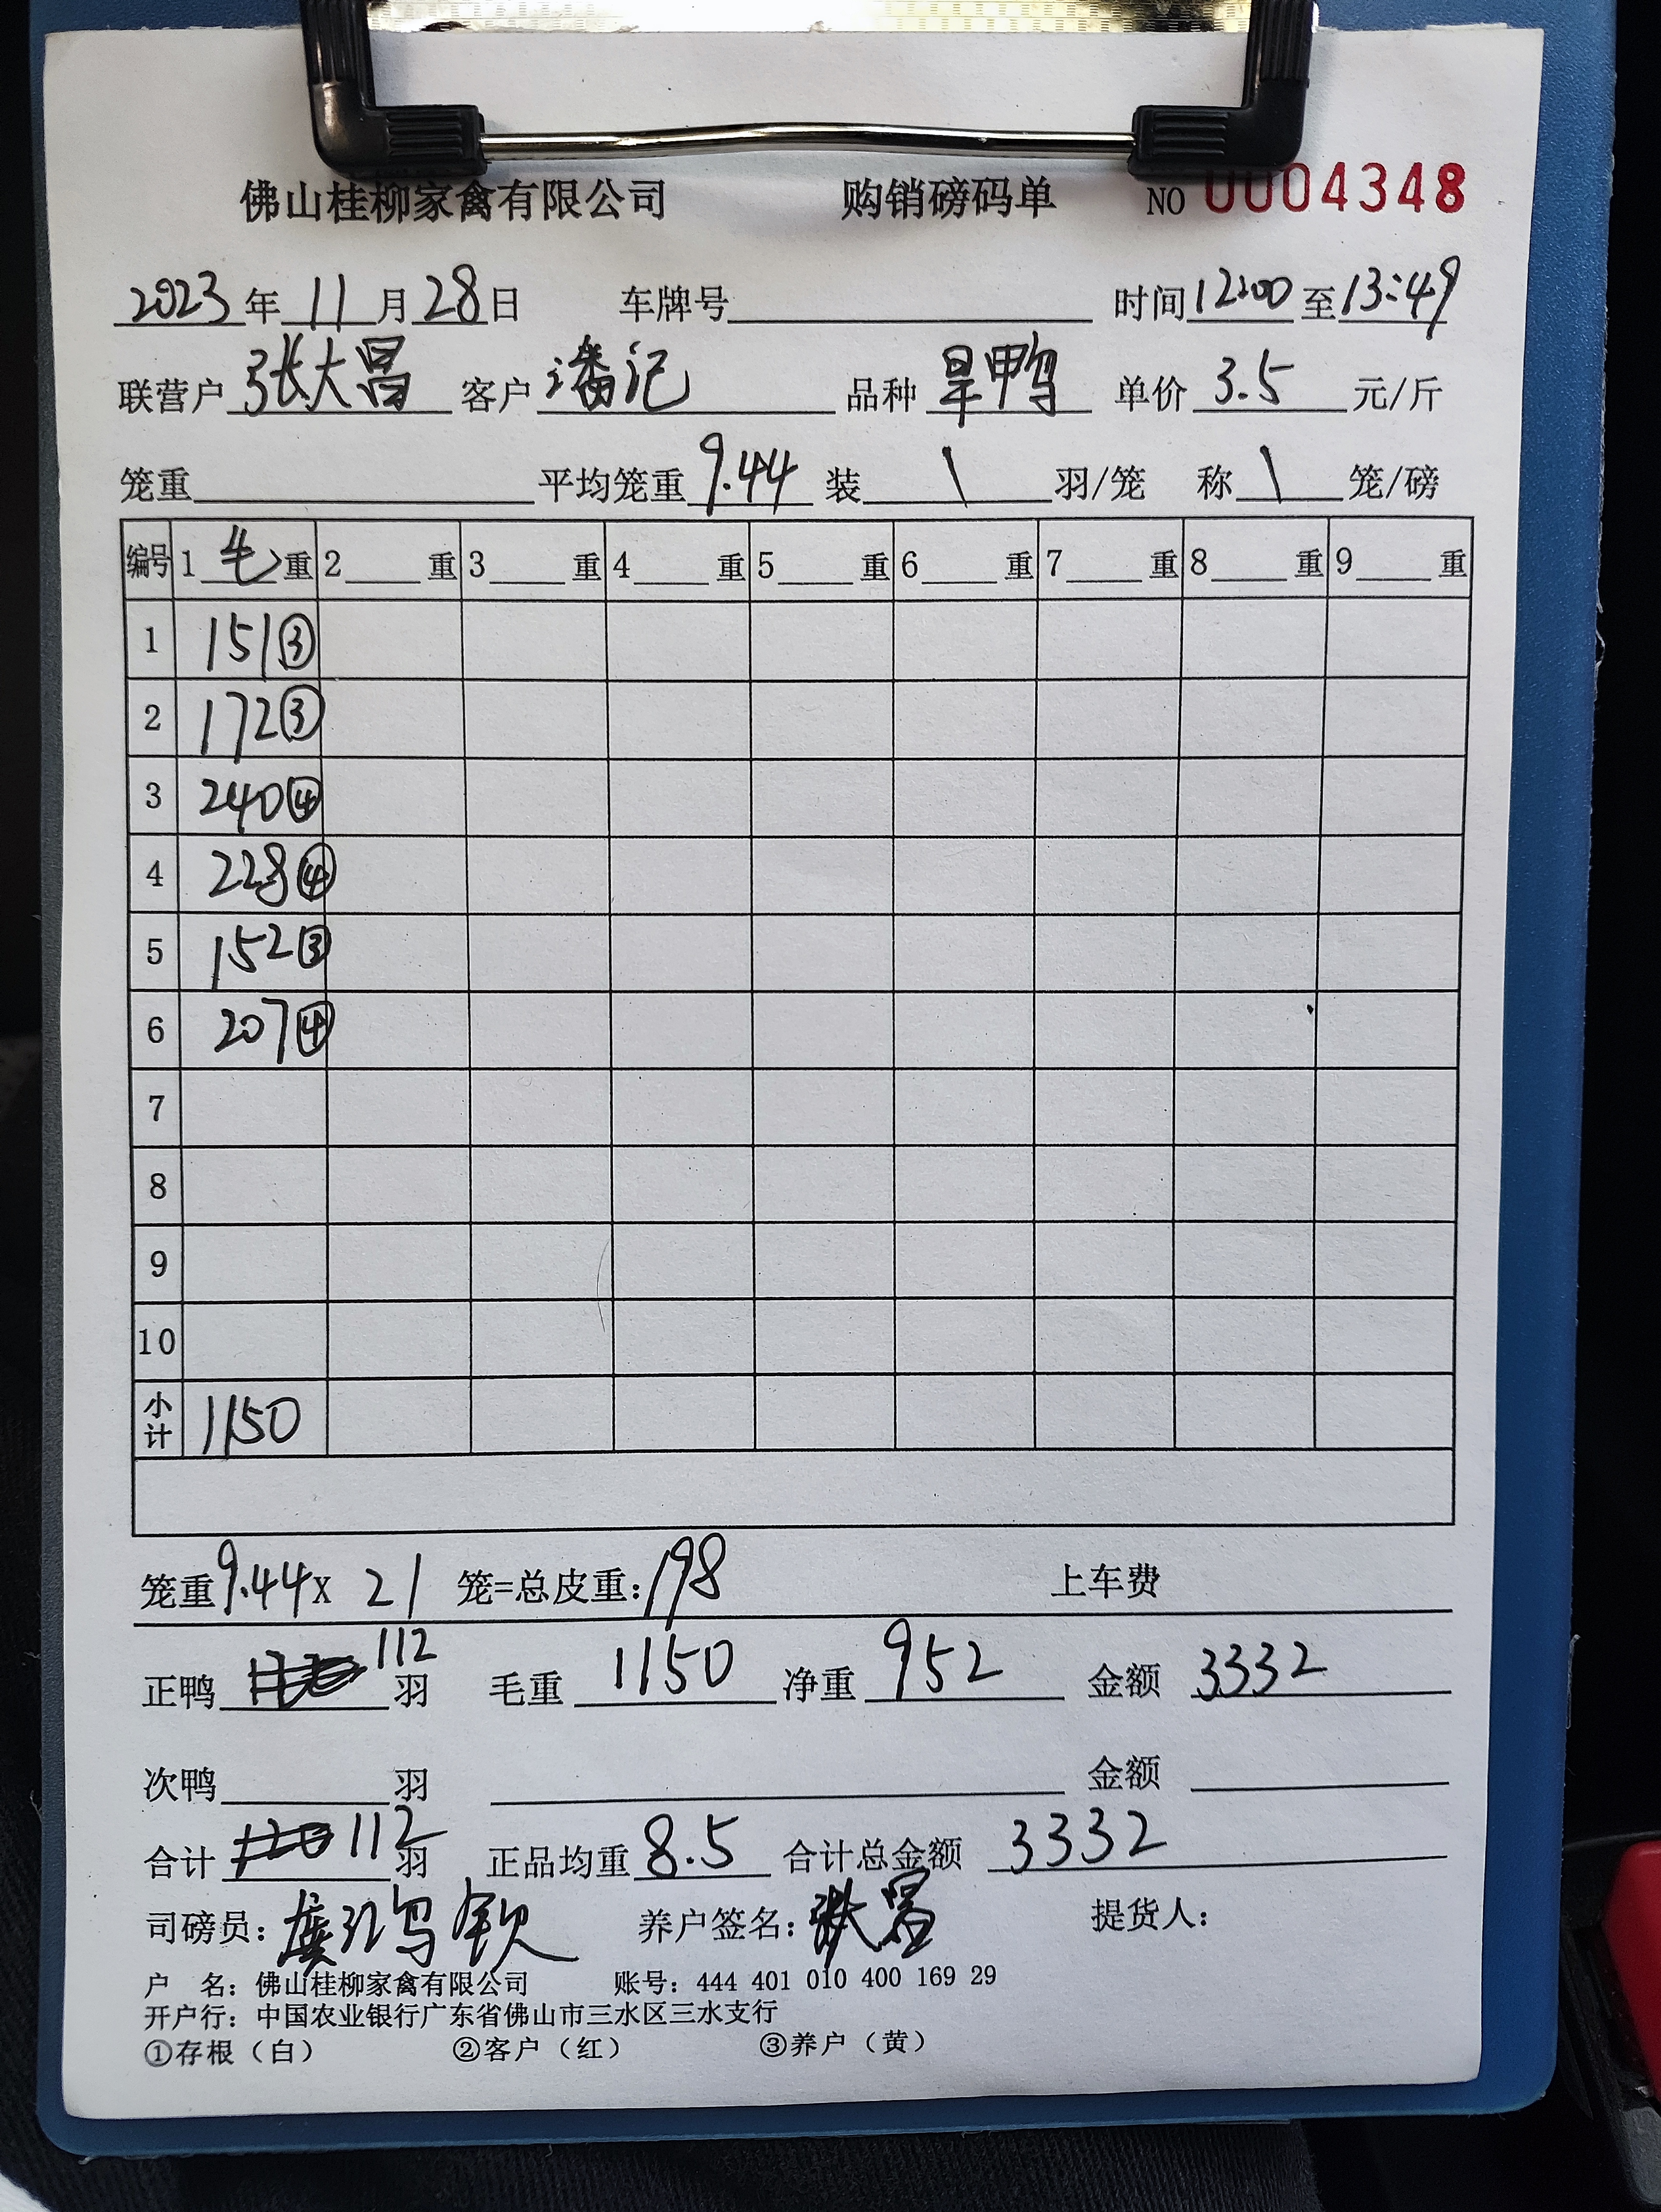 佛山桂柳家禽有限公司 购销磅码单 NO 0004348
2023年11月28日 车牌号 时间12:00至13:49
联营户 张大昌 客户 潘记 品种 旱鸭 单价 3.5 元/斤
笼重 平均笼重 9.44 装 \ 羽/笼 称 \ 笼/磅
编号 1 毛 重 2 重 3 重 4 重 5 重 6 重 7 重 8 重 9 重
1 151③
2 172③
3 240④
4 228④
5 152③
6 207④
7
8
9
10
小计 1150
笼重9.44X 21 笼=总皮重:198 上车费
正鸭 112 羽 毛重 1150 净重 952 金额 3332
次鸭 羽 金额
合计 112 羽 正品均重 8.5 合计总金额 3332
司磅员: 养户签名: 提货人:
户 名: 佛山桂柳家禽有限公司 账号: 444 401 010 400 169 29
开户行: 中国农业银行广东省佛山市三水区三水支行
①存根(白) ②客户(红) ③养户(黄)